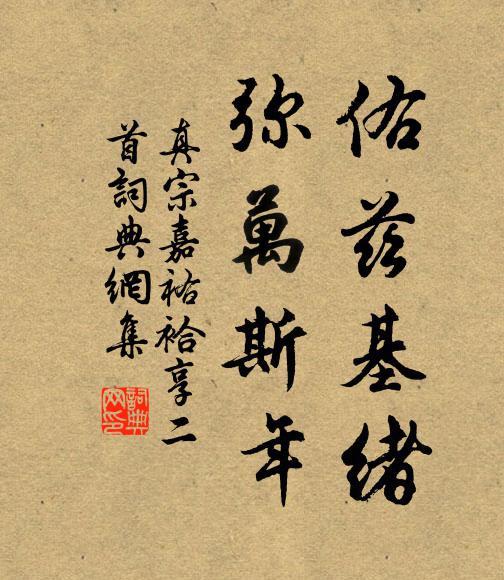 佑茲基緒
弥萬斯年
真宗嘉祐袷享二
首詞典網集
詞典
网印